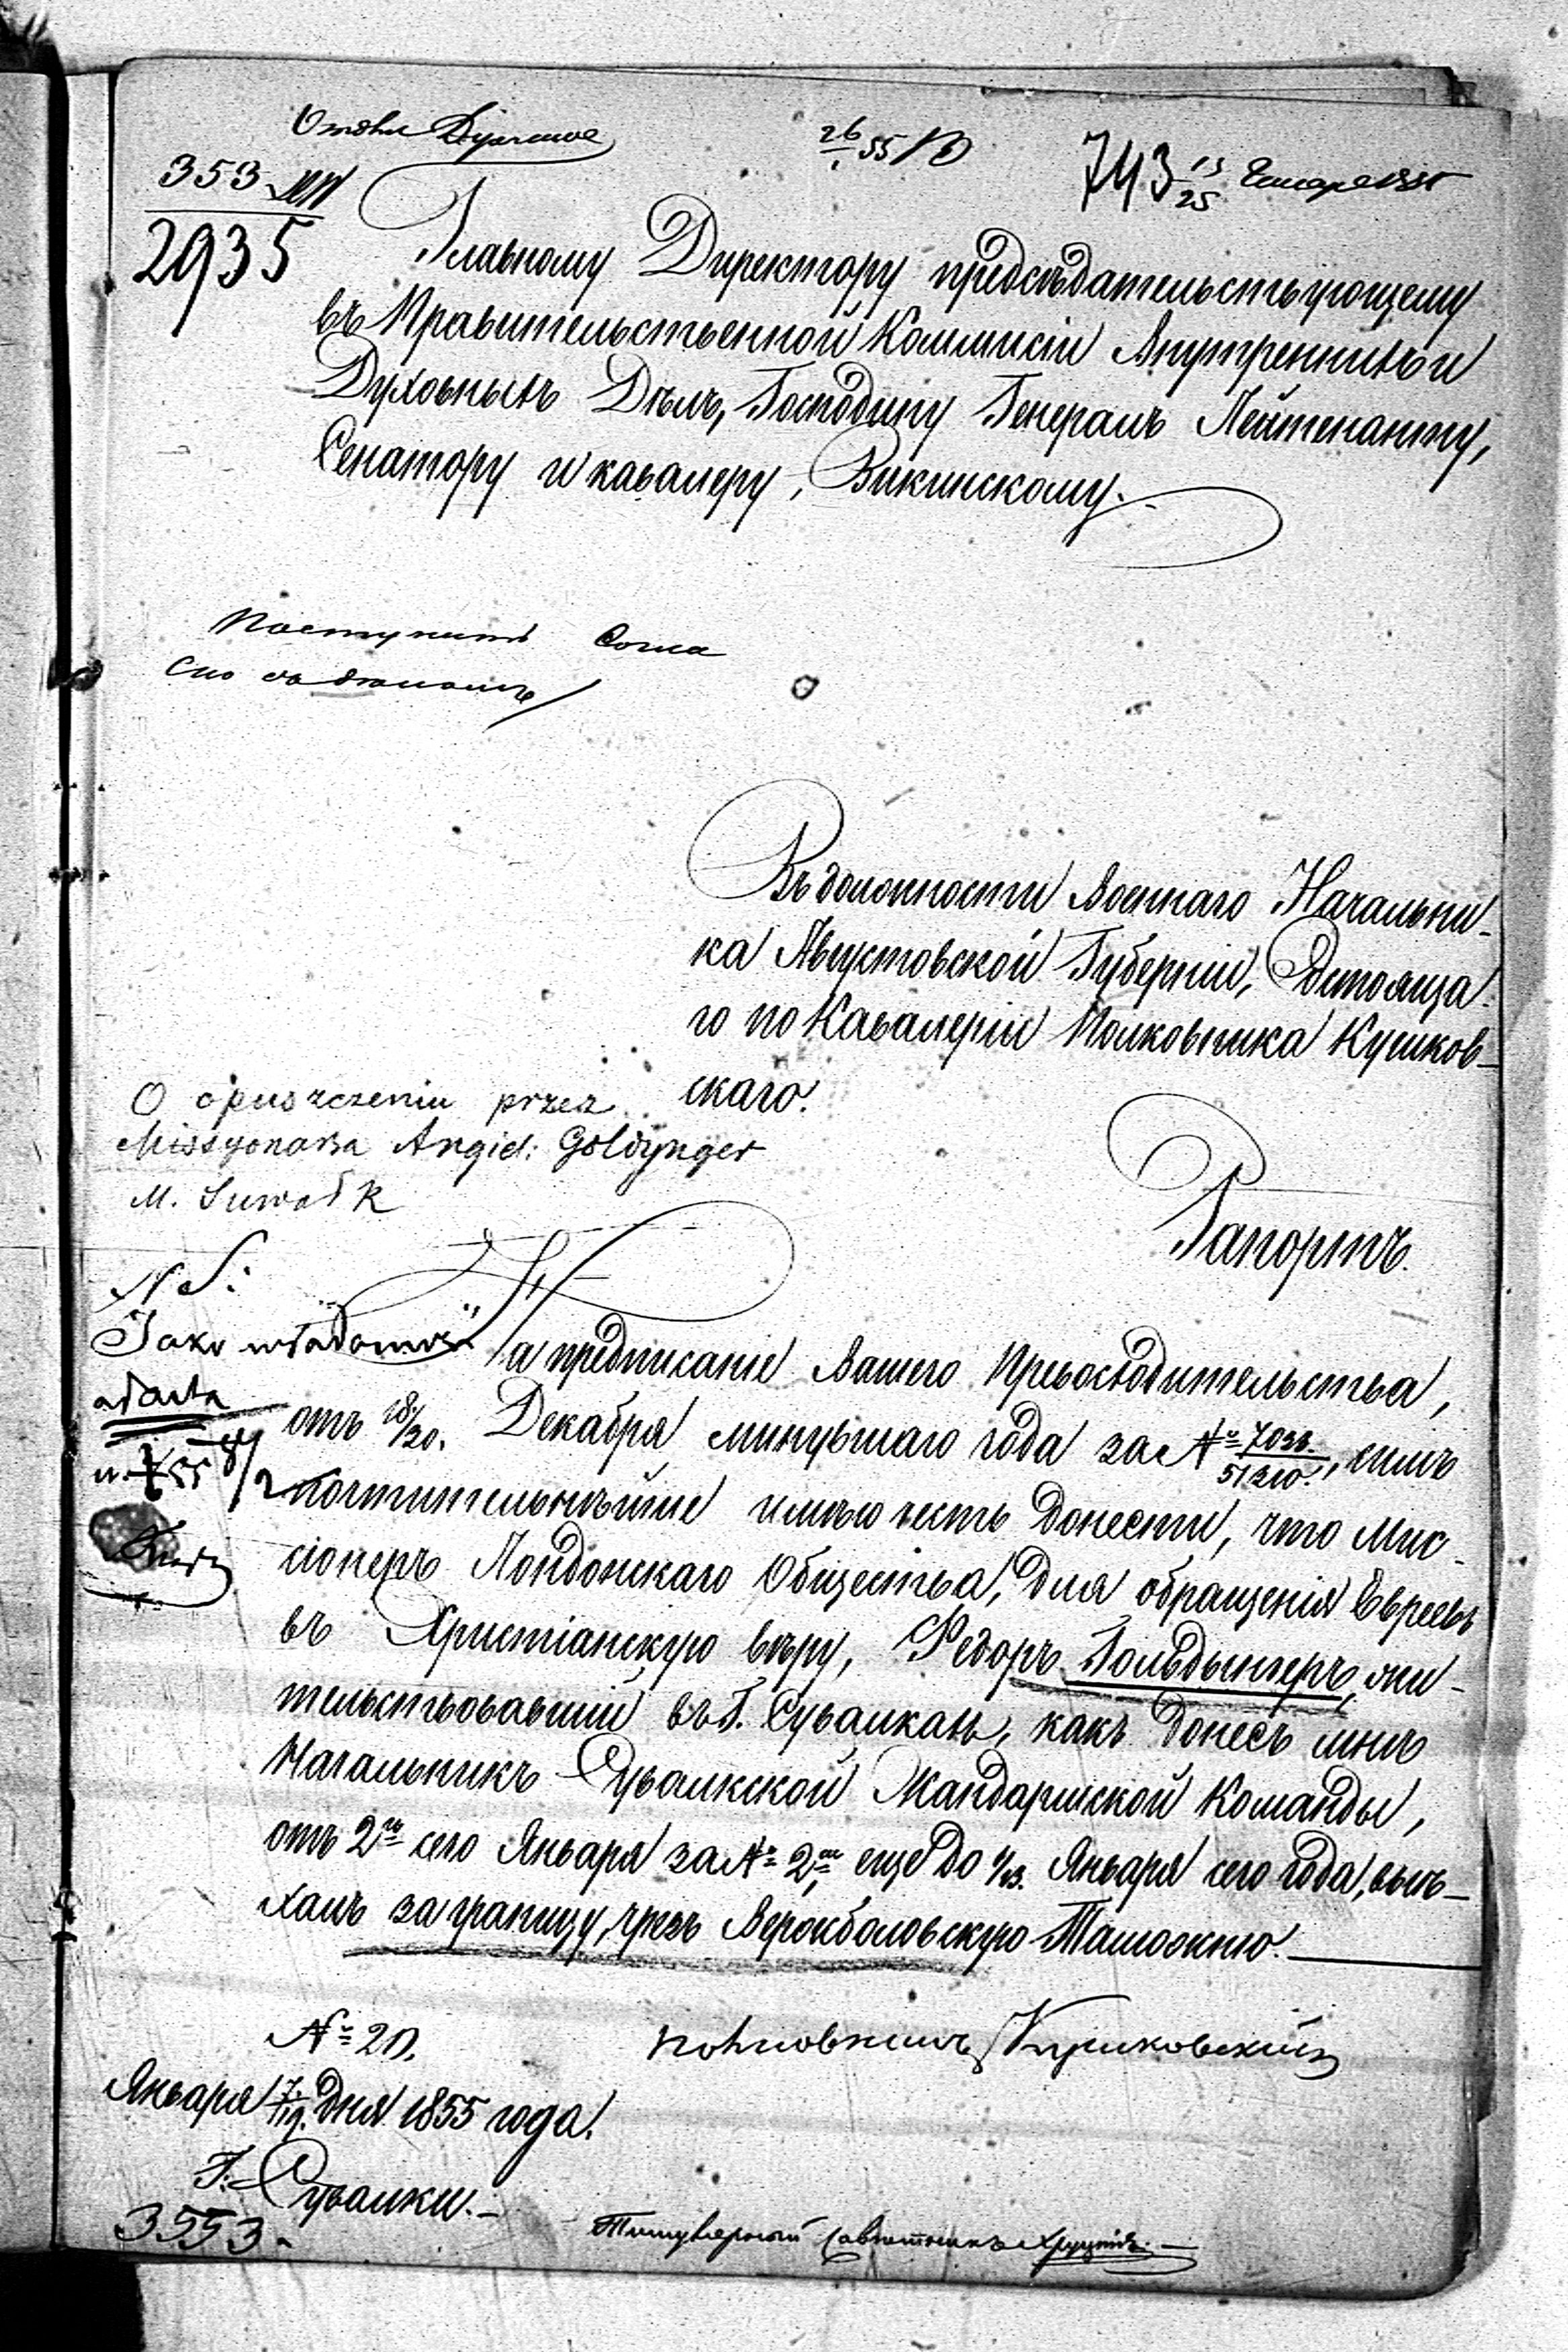 353
2935
26 55
743 13/25 Января 1855
Главному Директору предсѣдательствующему
въ Правительственной Коммисіи Внутреннихъ и
Духовныхъ Дѣлъ, Господину Генералъ Лейтенанту,
Сенатору и кавалеру, Викинскому.
Поступить согла
сно съ закономъ
Въ должности Военнаго Начальни-
ка Августовской Губерніи, Состояща-
го по Кавалеріи Полковника Кушков-
скаго.
O opuszczeniu przez
Missyonarza Angiel: Goldynger
M. Suwałk
Рапортъ.
NS:
"Jako wiadomość"
ad acta
На предписаніе Вашего Превосходительства,
отъ 18/30. Декабря минувшаго года за №, симъ
почтительнѣйше имѣю честь донести, что Мис-
сіонеръ Лондонскаго Общества, для обращенія Евреевъ
въ Христіанскую вѣру, Федоръ Гольдынгеръ, жи-
тельствовавшій въ Г. Сувалкахъ, какъ донесъ мнѣ
Начальникъ Сувалкской Жандармской Команды,
отъ 2го сего Января за № 2, еще до 1/13. Января сего года, выѣ-
халъ за границу, чрезъ Вержболовскую Таможню.
№ 20.
Полковникъ Кушковскій
Января 7/19. дня 1855 года.
Г. Сувалки.
3553.
Титулярный Совѣтникъ